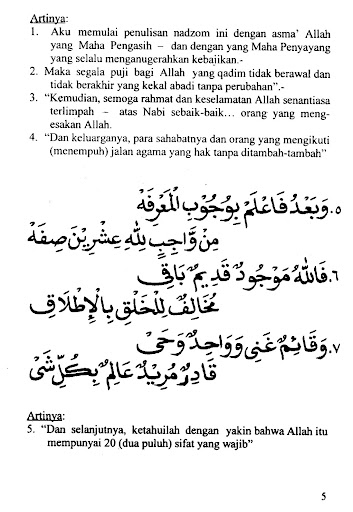 Artinya:
1. Aku memulai penulisan nadzom ini dengan asma' Allah
yang Maha Pengasih – dan dengan yang Maha Penyayang
yang selalu menganugerahkan kebajikan.-
2. Maka segala puji bagi Allah yang qadim tidak berawal dan
tidak berakhir yang kekal abadi tanpa perubahan”.-
3. “Kemudian, semoga rahmat dan keselamatan Allah senantiasa
terlimpah – atas Nabi sebaik-baik… orang yang meng-
esakan Allah.
4. “Dan keluarganya, para sahabatnya dan orang yang mengikuti
(menempuh) jalan agama yang hak tanpa ditambah-tambah”
٥. وَبَعْدُ فَاعْلَمْ بِوُجُوْبِ الْمَعْرِفَهْ
مِنْ وَّاجِبٍ لِلّٰهِ عِشْرِيْنَ صِفَهْ
٦. فَاللّٰهُ مَوْجُوْدٌ قَدِيْمٌ بَاقِى
مُخَالِفٌ لِلْخَلْقِ بِالْإِطْلَاقِ
٧. وَقَائِمٌ غَنِى وَوَاحِدٌ وَحَىّ
قَادِرٌ مُرِيْدٌ عَالِمٌ بِكُلِّ شَىْ
Artinya:
5. “Dan selanjutnya, ketahuilah dengan yakin bahwa Allah itu
mempunyai 20 (dua puluh) sifat yang wajib”
5